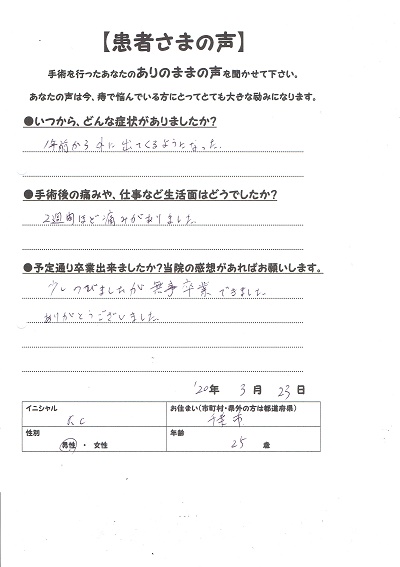 【患者さまの声】
手術を行ったあなたのありのままの声を聞かせて下さい。
あなたの声は今、痔で悩んでいる方にとってとても大きな励みになります。
●いつから、どんな症状がありましたか?
1年前から外に出てくるようになった
●手術後の痛みや、仕事など生活面はどうでしたか?
2週間ほど痛みがありました
●予定通り卒業出来ましたか?当院の感想があればお願いします。
少しのびましたが無事卒業できました
ありがとうございました
'20年 3月 23日
イニシャル お住まい(市町村・県外の方は都道府県)
K C 千葉市
性別 年齢
男性 ・ 女性 25 歳